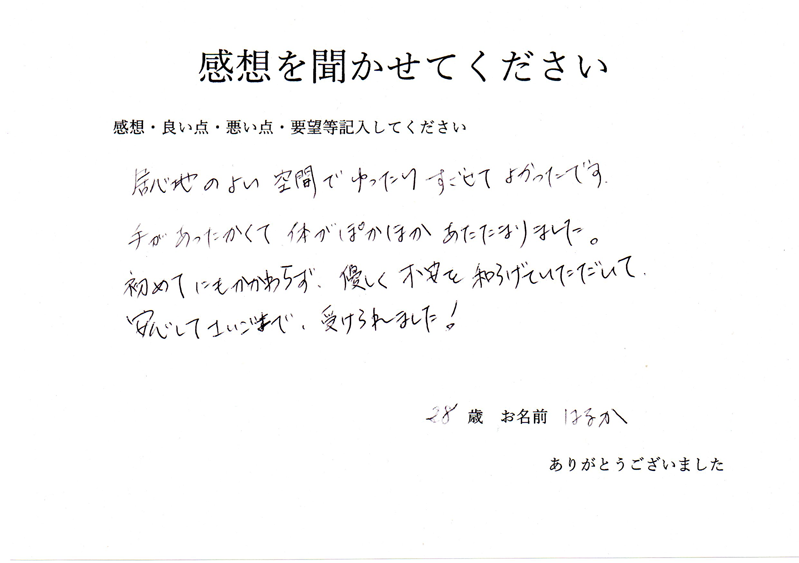 感想を聞かせてください
感想・良い点・悪い点・要望等記入してください
居心地のよい空間でゆったりすごせてよかったです.
手があったかくて体がぽかぽかあたたまりました。
初めてにもかかわらず、優しく不安を和らげていただいて.
安心してさいごまで、受けられました!
28歳 お名前 はるか
ありがとうございました